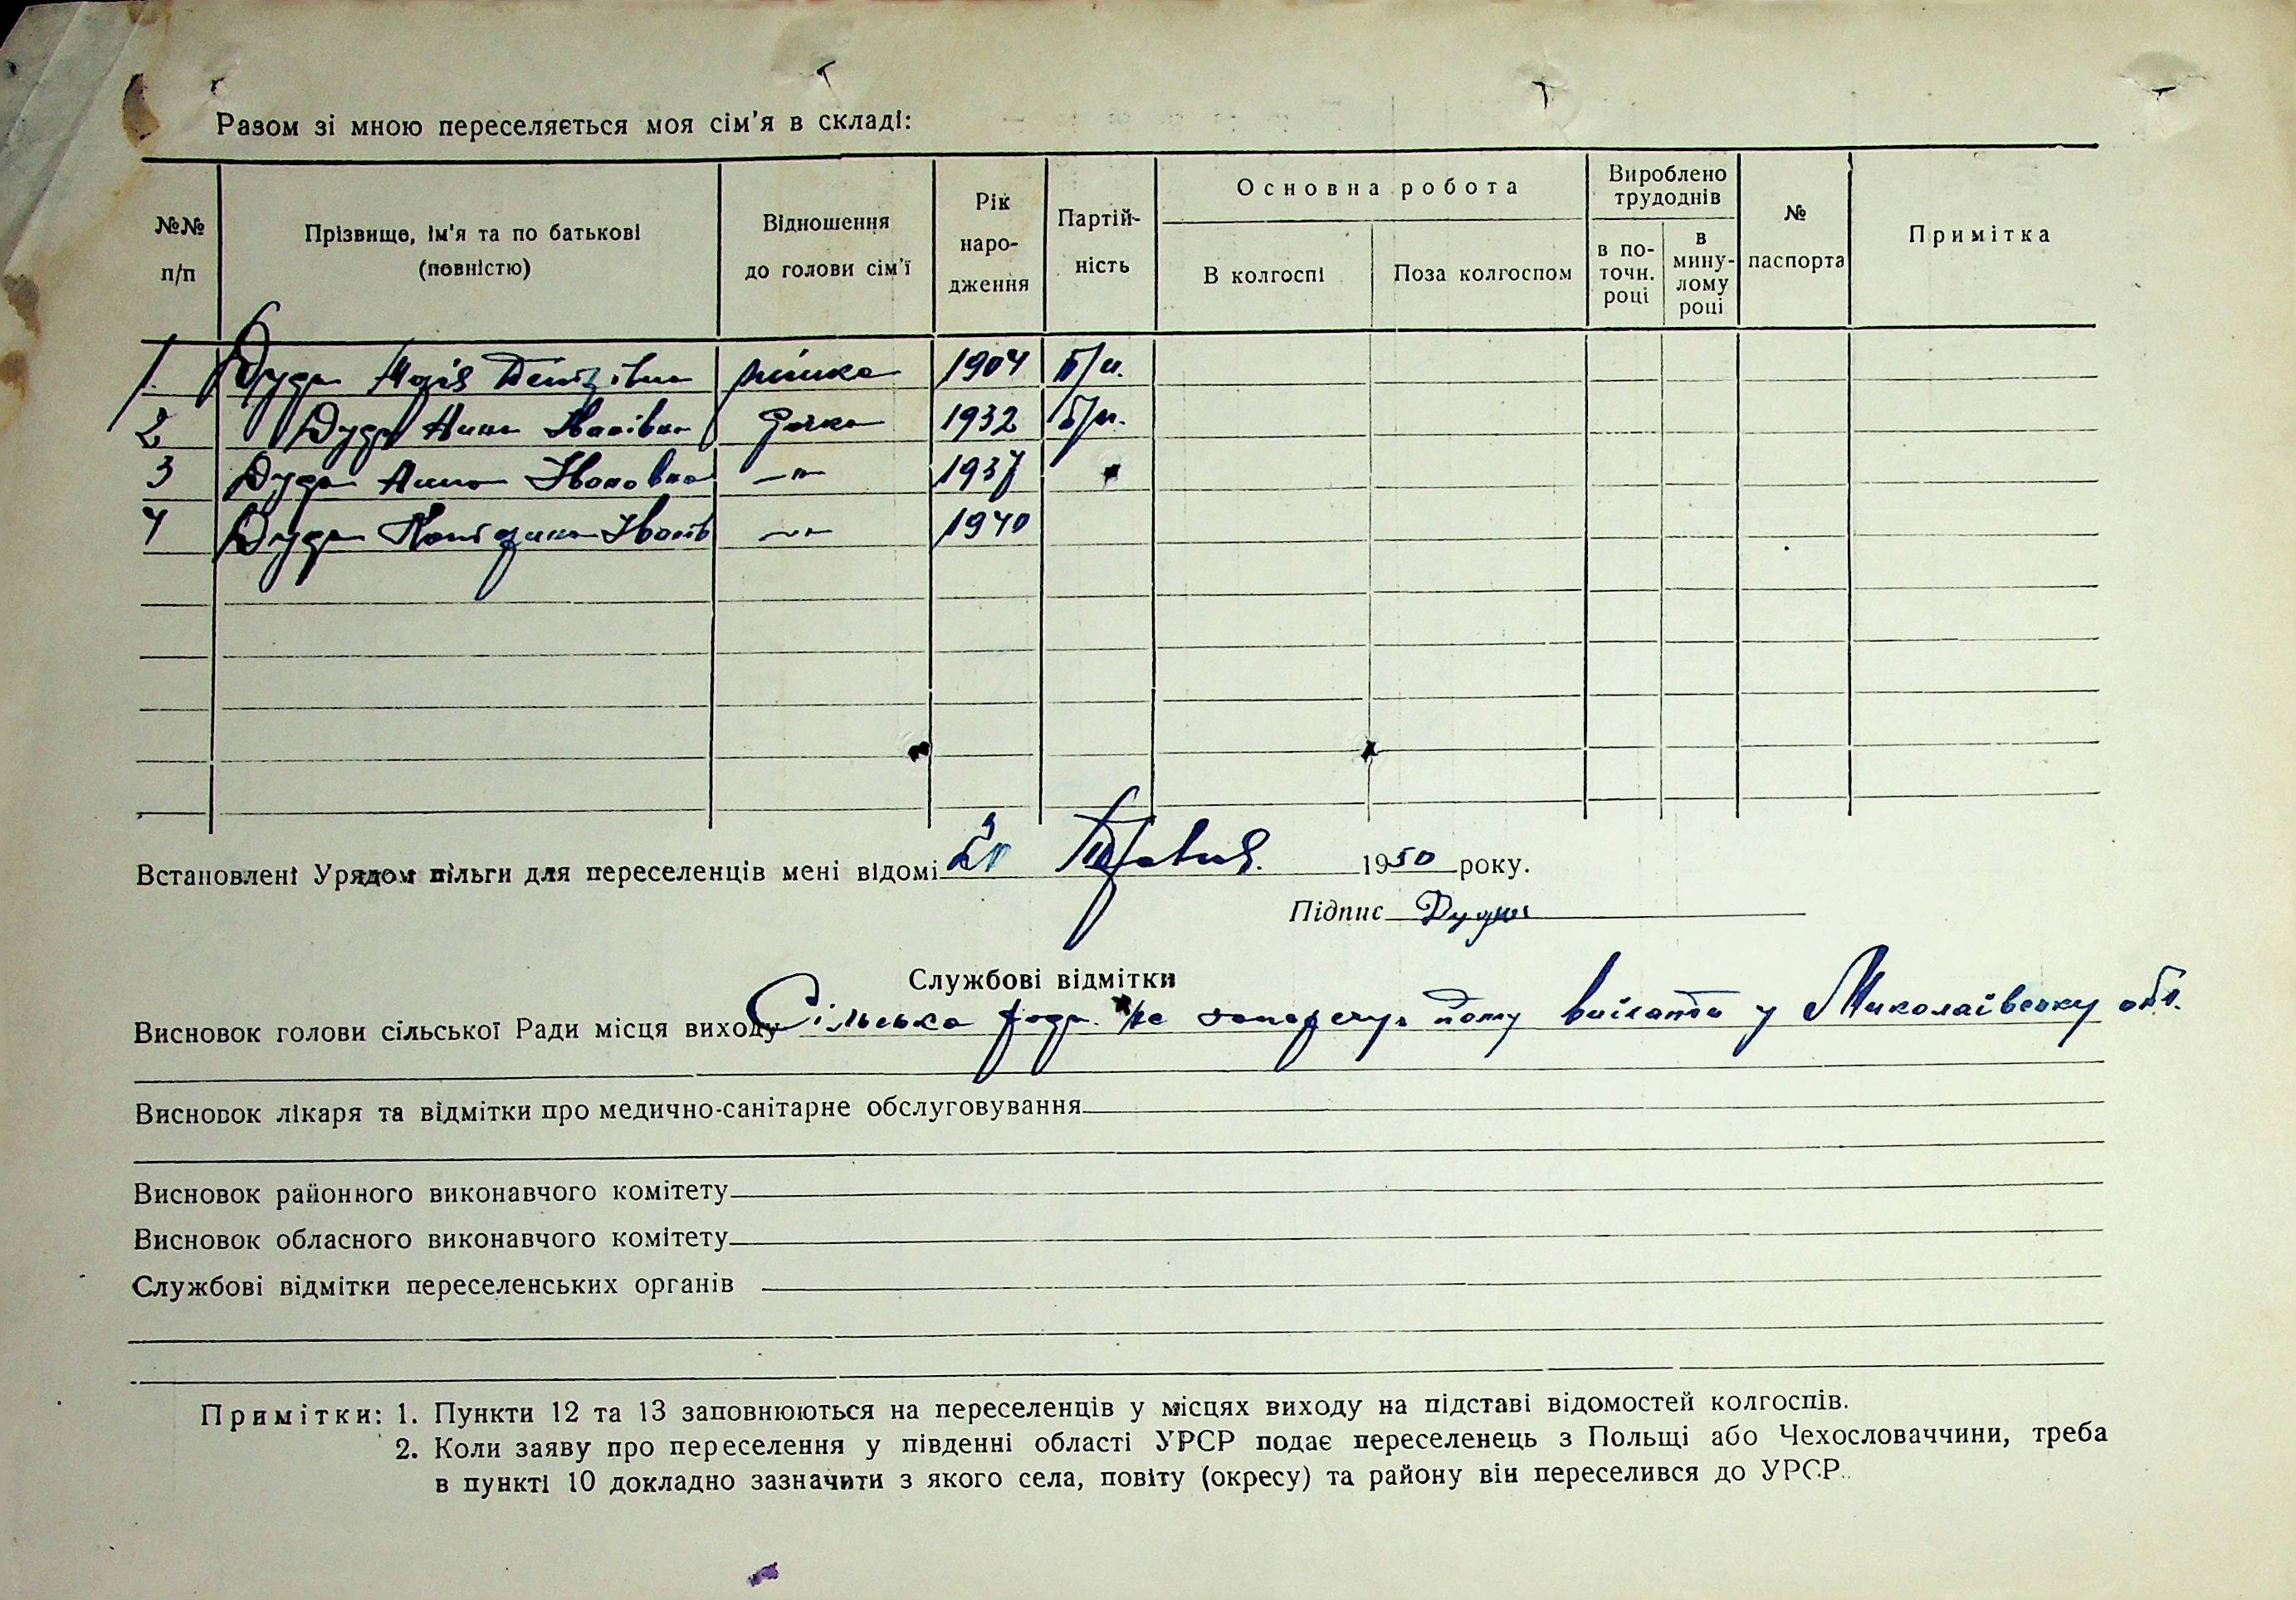 Разом зі мною переселяється моя сім'я в складі:
№№ п/п
Прізвище, ім'я та по батькові (повністю)
Відношення до голови сім'ї
Рік народження
Партійність
Основна робота
В колгоспі
Поза колгоспом
Вироблено трудоднів
в по-точн. році
в мину-лому році
№ паспорта
Примітка
1 Дуда Марія 1904 Б/п.
2 Дуда Анна Іванівна дочка 1932 Б/п.
3 Дуда Анна Івановна —"— 1937
4 Дуда Катерина Іванів —"— 1940
Встановлені Урядом пільги для переселенців мені відомі 1950 року.
Підпис Дуда
Службові відмітки
Висновок голови сільської Ради місця виходу Сільська рада не заперечує у Миколаївську обл.
Висновок лікаря та відмітки про медично-санітарне обслуговування
Висновок районного виконавчого комітету
Висновок обласного виконавчого комітету
Службові відмітки переселенських органів
Примітки: 1. Пункти 12 та 13 заповнюються на переселенців у місцях виходу на підставі відомостей колгоспів.
2. Коли заяву про переселення у південні області УРСР подає переселенець з Польщі або Чехословаччини, треба
в пункті 10 докладно зазначити з якого села, повіту (окресу) та району він переселився до УРСР.